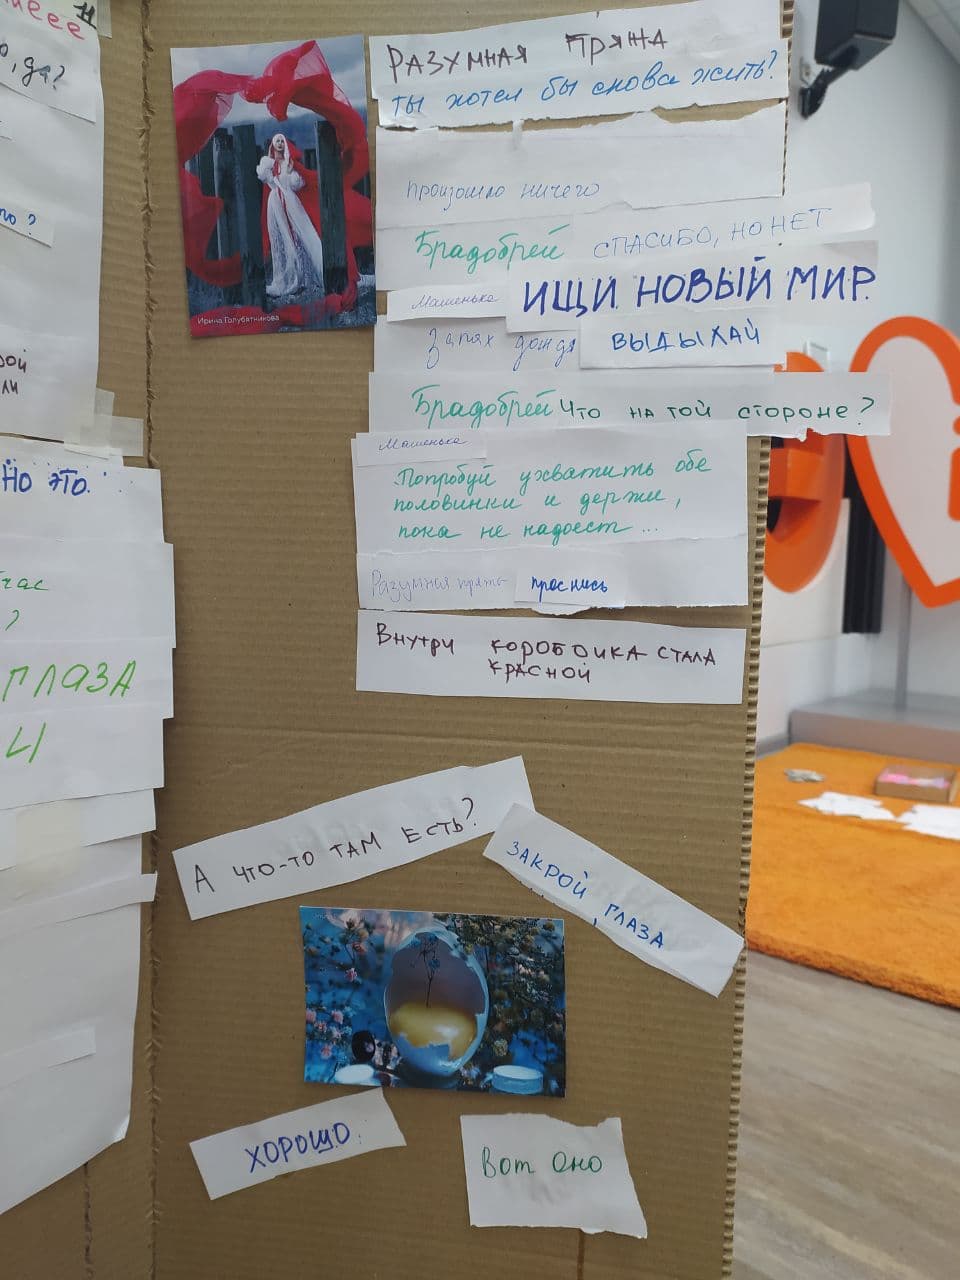 о, да?
НО ЭТО.
ГЛАЗА
Ирина Голубятникова
РАЗУМНАЯ ПРЯЖА
ты хотел бы снова жить?
произошло ничего
Брадобрей СПАСИБО, НО НЕТ
Машенька ИЩИ НОВЫЙ МИР
Запах дождя ВЫДЫХАЙ
Брадобрей Что на той стороне?
Машенька
Попробуй ухватить обе
половинки и держи,
пока не надоест...
Разумная пряжа проснись
ВНУТРИ КОРОБОЧКА СТАЛА
КРАСНОЙ
А ЧТО-ТО ТАМ ЕСТЬ?
ЗАКРОЙ ГЛАЗА
ХОРОШО.
Вот оно